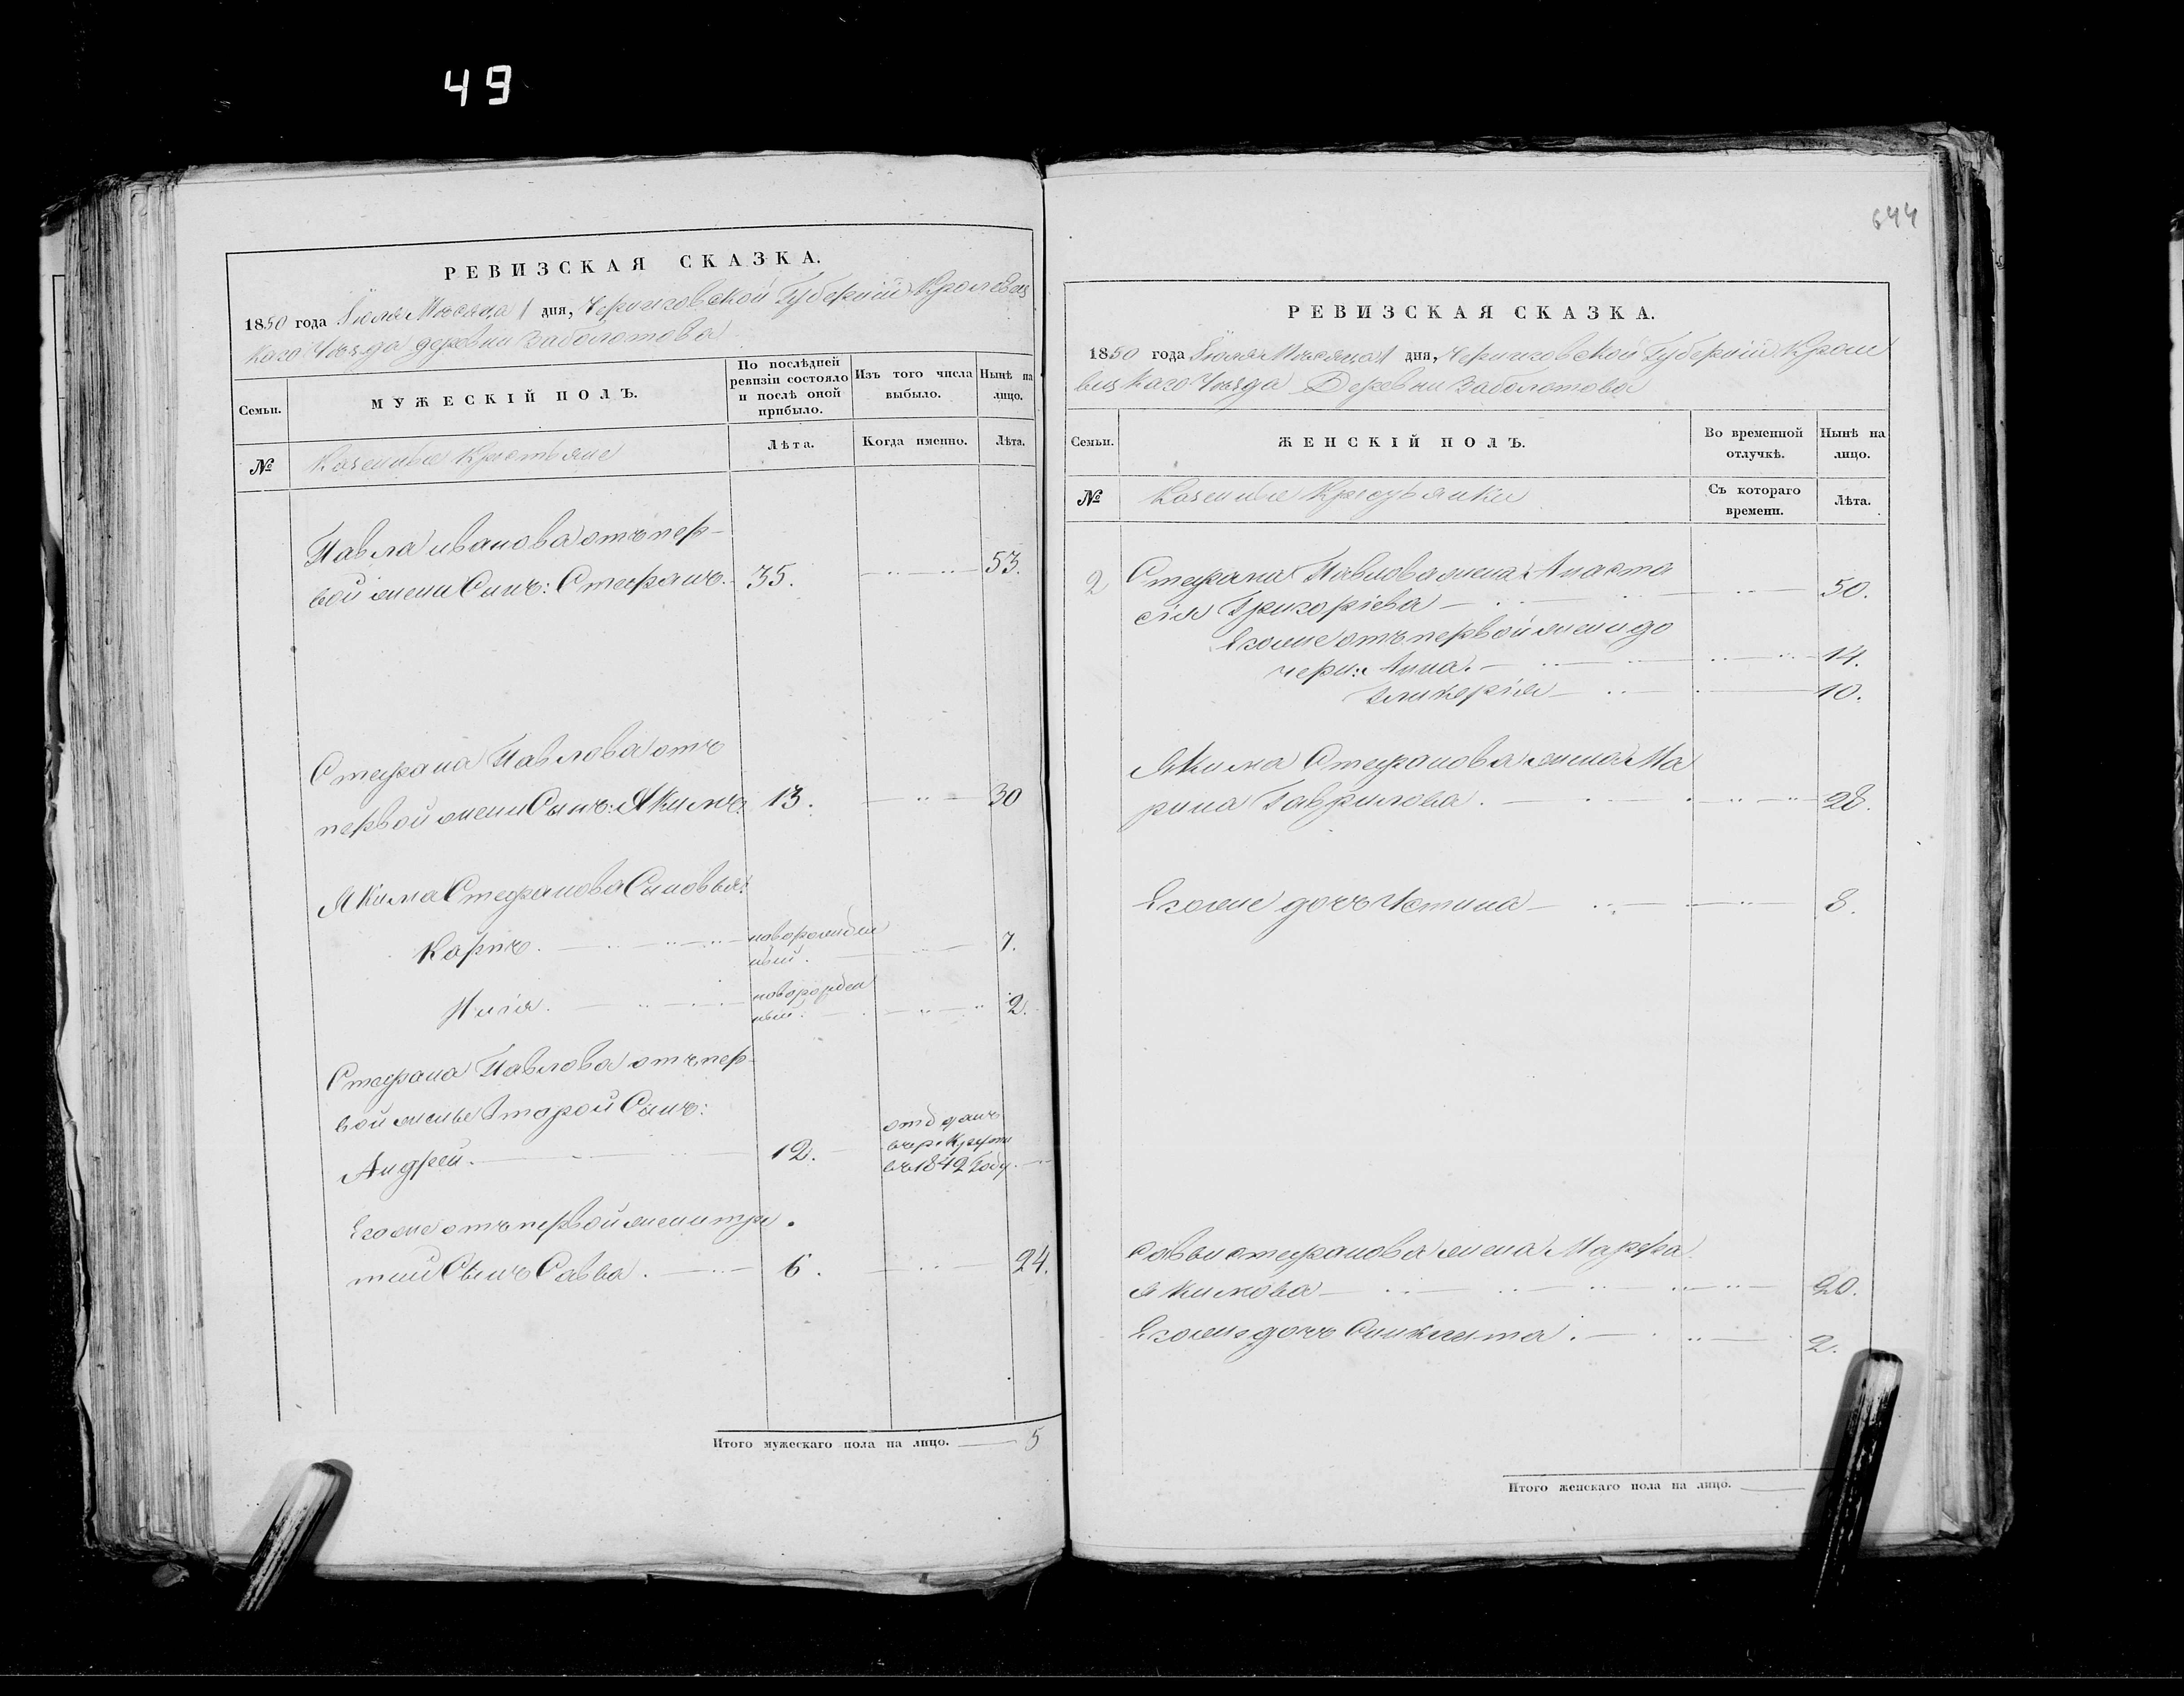 49
РЕВИЗСКАЯ СКАЗКА.
1850 года Іюля Мѣсяца 1 дня, Черниговской Губерніи Кролевец
каго Уѣзда деревни Заболотова
Семьи.
МУЖЕСКІЙ ПОЛЪ.
По послѣдней ревизіи состояло и послѣ оной прибыло.
Изъ того числа выбыло.
Нынѣ на лицо.
№
Казенные Крестьяне
Лѣта.
Когда именно.
Лѣта.
Павла иванова отъ пер-
вой жены Сынъ: Стефанъ. 35. 53.
Стефана Павлова отъ
первой жены Сынъ: Якимъ. 13. 30
Якима Стефанова Сыновья:
Карпъ. новорожден
ный. 7.
новорожден
ный. 2.
Стефана Павлова отъ пер-
вой жены второй Сынъ:
Андрей. 12. отданъ
въ рекруты
въ 1842 году.
Егоже отъ первой жены тре
тий Сынъ Савва. 6. 24.
Итого мужескаго пола на лицо. 5
644
РЕВИЗСКАЯ СКАЗКА.
1850 года Іюля Мѣсяца 1 дня, Черниговской Губерніи Кроле
вецкаго Уѣзда Деревни Заболотова
Семьи.
ЖЕНСКІЙ ПОЛЪ.
Во временной отлучкѣ.
Нынѣ на лицо.
№
Казенные Крестьянки
Съ котораго времени.
Лѣта.
2 Стефана Павлова жена Анаста
сія Григоріева 50.
Егоже отъ первой жены до
чери: Анна. 14.
Гликерія 10.
Якима Стефанова жена Ма
рина Гаврилова. 28.
Егоже дочь Устина 8.
Саввы стефанова жена Марфа
Якимова 20.
Егоже дочь 2.
Итого женскаго пола на лицо.